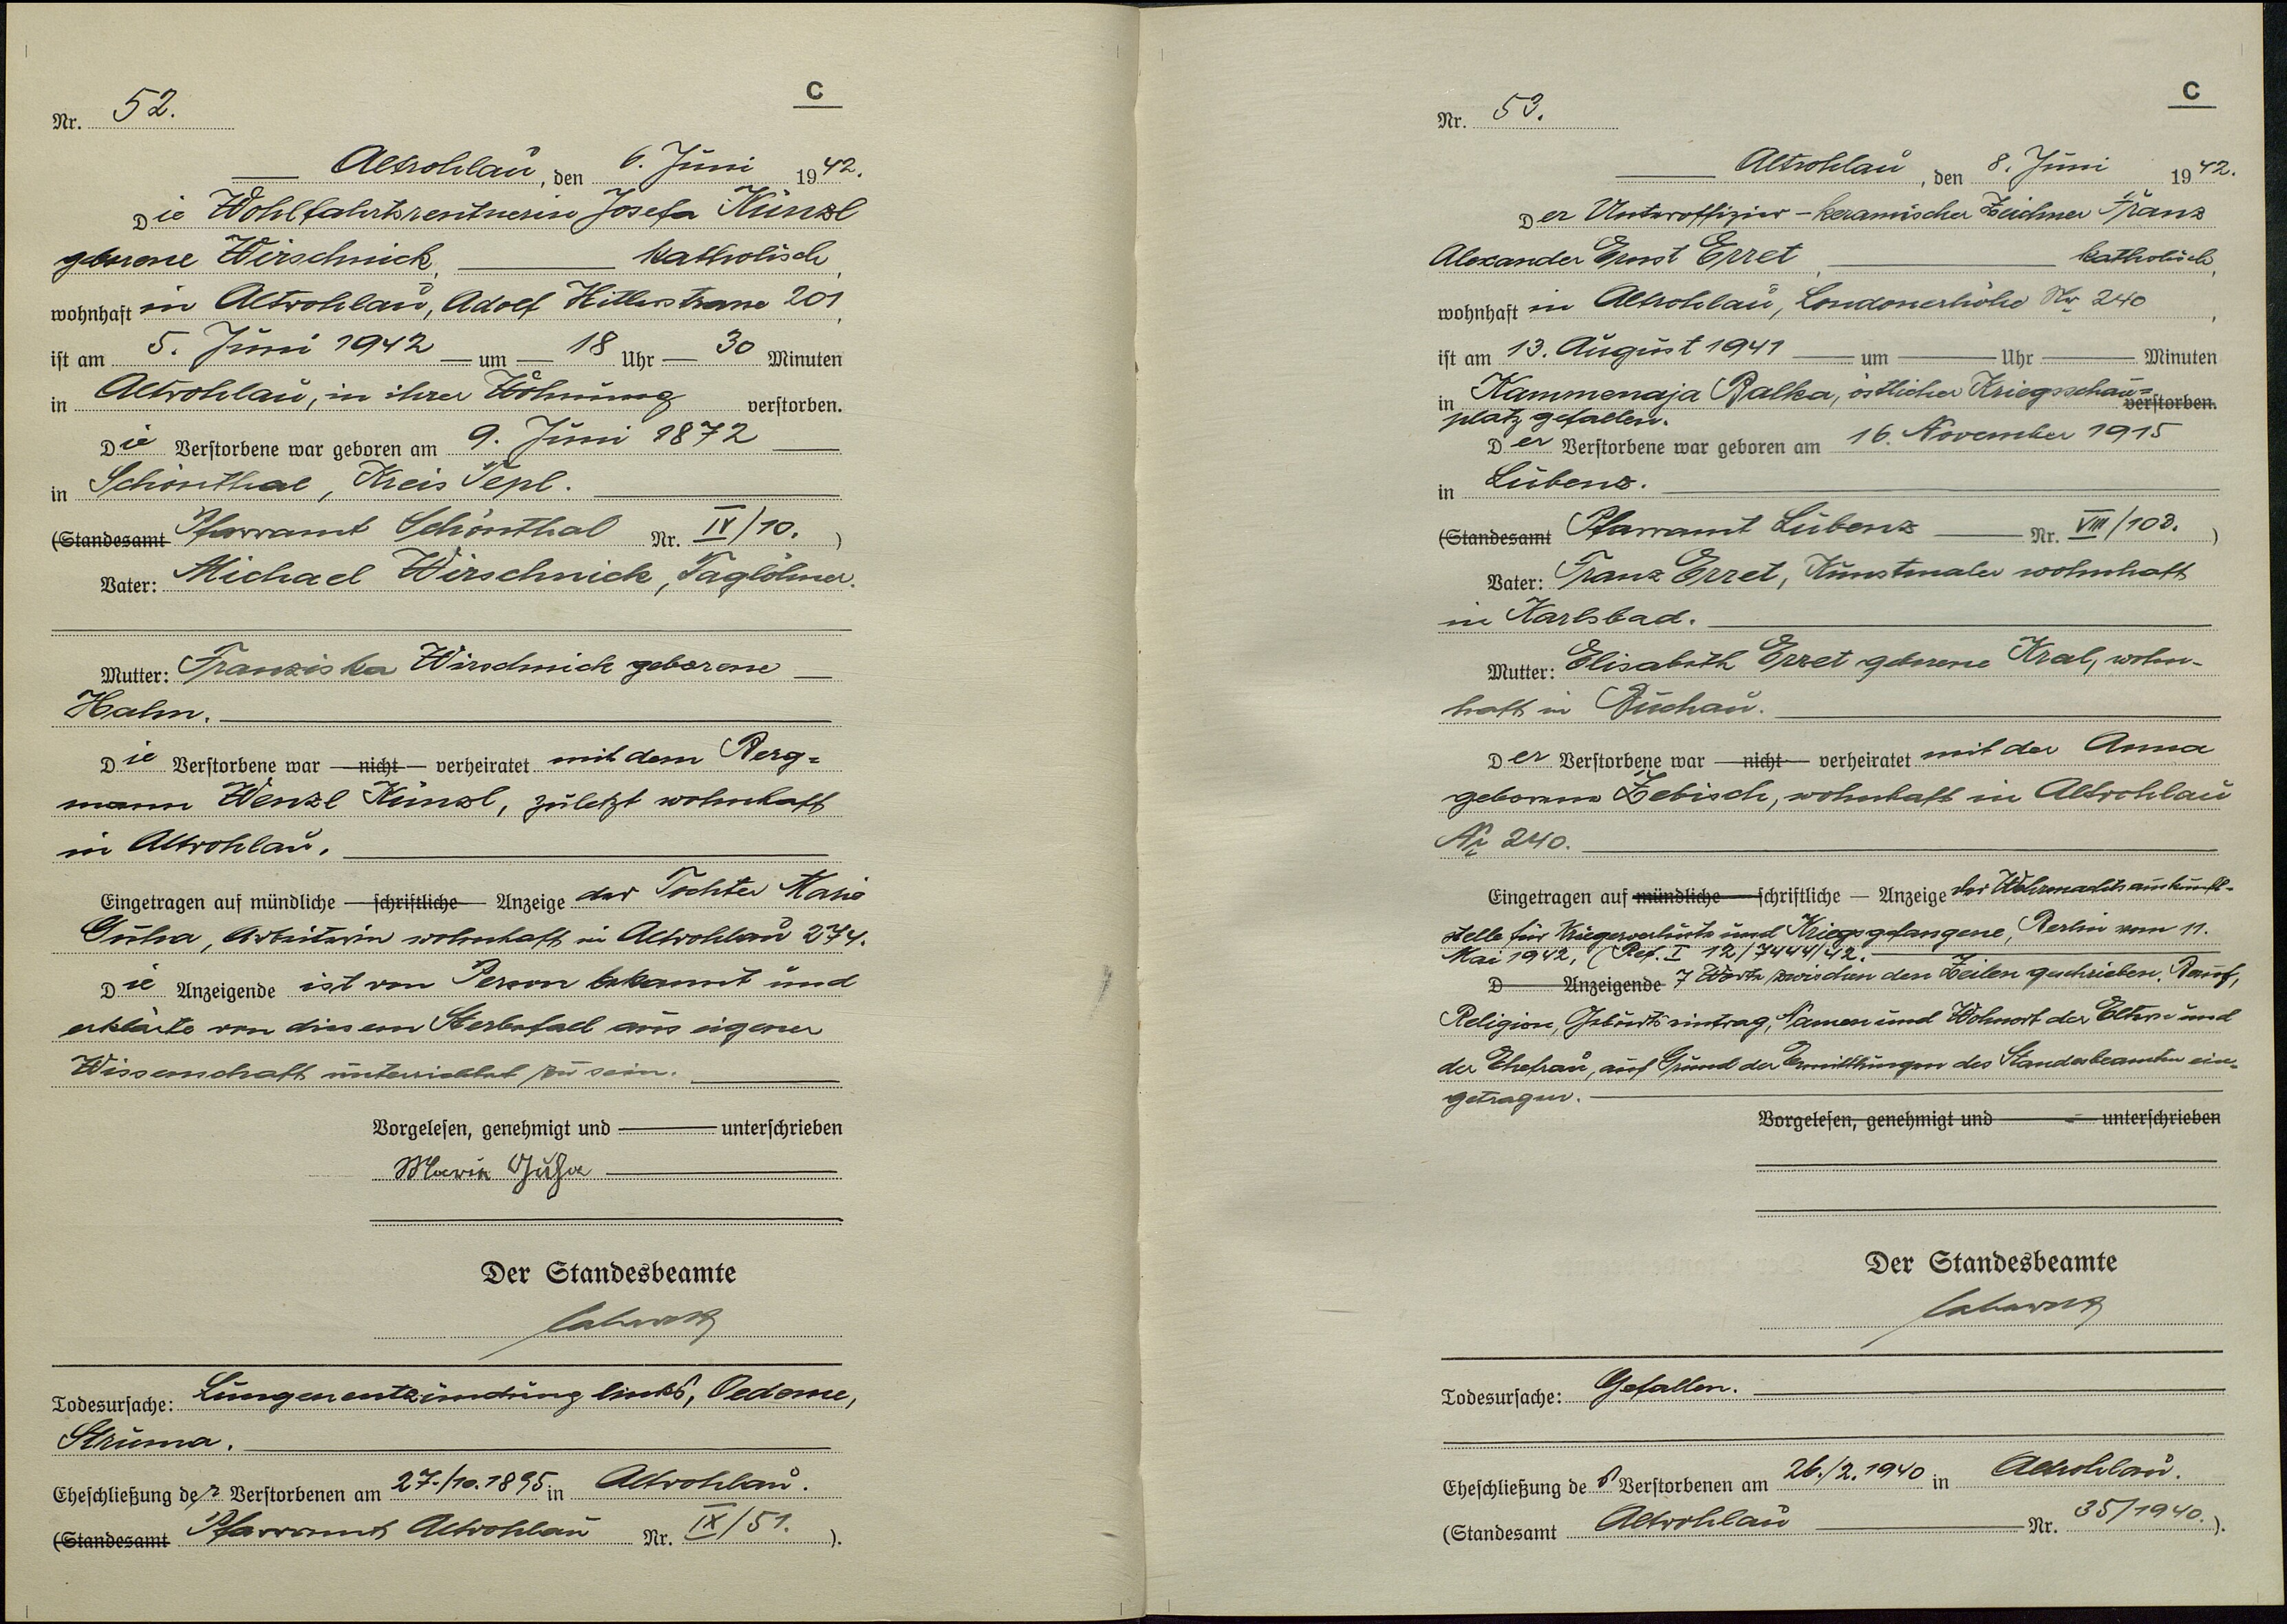 C
Nr. 52.
Altrohlau, den 6. Juni 1942.
Die Wohlfahrtsrentnerin Josefa Künzl
geborene Wirschnick, katholisch,
wohnhaft in Altrohlau, Adolf Hitlerstrasse 201,
ist am 5. Juni 1942 um 18 Uhr 30 Minuten
in Altrohlau, in ihrer Wohnung verstorben.
Die Verstorbene war geboren am 9. Juni 1872
in Schönthal, Kreis Tepl.
(Standesamt Pfarramt Schönthal Nr. IV/10. )
Vater: Michael Wirschnick, Taglöhner.
Mutter: Franziska Wirschnick geborene
Hahn.
Die Verstorbene war nicht verheiratet mit dem Berg=
mann Wenzl Künzl, zuletzt wohnhaft
in Altrohlau.
Eingetragen auf mündliche schriftliche Anzeige der Tochter Marie
Guha, Arbeiterin wohnhaft in Altrohlau 274.
Die Anzeigende ist von Person bekannt und
erklärte von diesem Sterbefall aus eigener
Wissenschaft unterrichtet zu sein.
Vorgelesen, genehmigt und unterschrieben
Marie Guha
Der Standesbeamte
Todesursache: Lungenentzündung links, Oedeme,
Struma.
Eheschließung der Verstorbenen am 27./10.1895 in Altrohlau.
(Standesamt Pfarramt Altrohlau Nr. IX/51. ).
C
Nr. 53.
Altrohlau, den 8. Juni 1942.
Der Unteroffizier - keramischer Zeichner Franz
Alexander Ernst Erret, katholisch,
wohnhaft in Altrohlau, Londonerhöhe Nr 240,
ist am 13. August 1941 um Uhr Minuten
in Kammenaja Balka, östlicher Kriegsschau= verstorben.
platz gefallen.
Der Verstorbene war geboren am 16. November 1915
in Lubenz.
(Standesamt Pfarramt Lubenz Nr. VIII/103. )
Vater: Franz Erret, Kunstmaler wohnhaft
in Karlsbad.
Mutter: Elisabeth Erret geborene Kral, wohn-
haft in Buchau.
Der Verstorbene war nicht verheiratet mit der Anna
geborene Zebisch, wohnhaft in Altrohlau
Nr 240.
Eingetragen auf mündliche schriftliche Anzeige der Wehrmachtsauskunft-
stelle für Kriegerverluste und Kriegsgefangene, Berlin vom 11.
Mai 1942, (Ref. I 12/7444/42.
D Anzeigende 7 Worte zwischen den Zeilen geschrieben. Beruf,
Religion, Geburtseintrag, Namen und Wohnort der Eltern und
der Ehefrau, auf Grund der Ermittlungen des Standesbeamten ein=
getragen.
Vorgelesen, genehmigt und unterschrieben
Der Standesbeamte
Todesursache: Gefallen.
Eheschließung des Verstorbenen am 26./2.1940 in Altrohlau.
(Standesamt Altrohlau Nr. 35/1940. ).